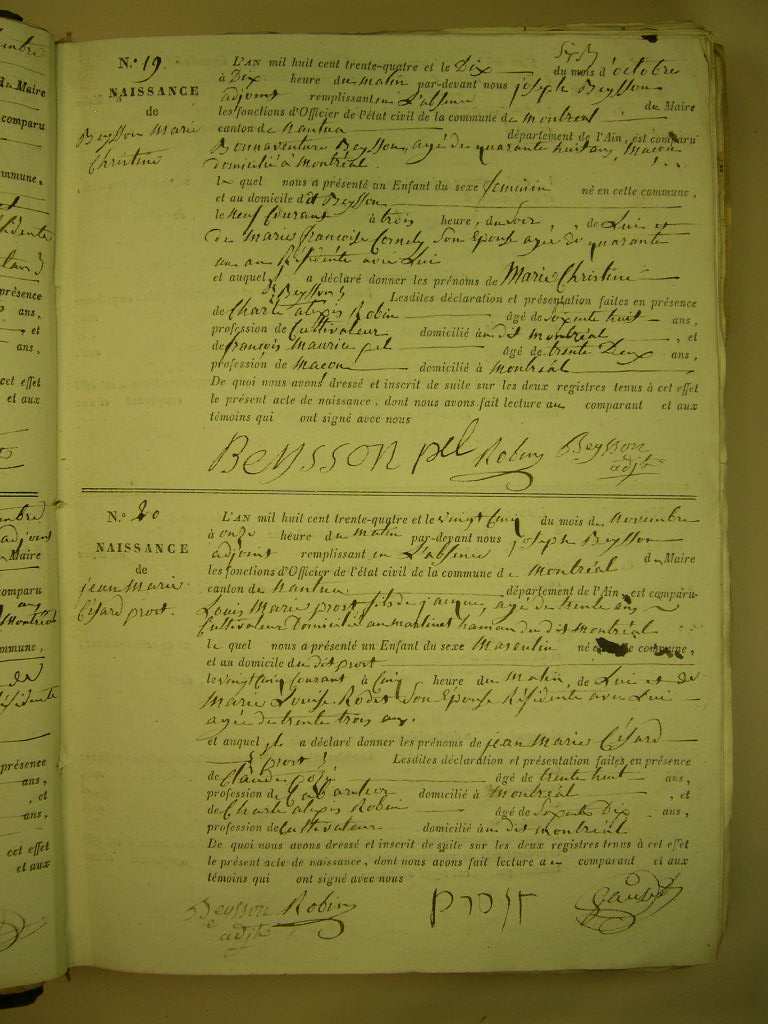 N.o 19.
NAISSANCE
de
Beysson Marie
Christine
L'AN mil huit cent trente-quatre et le Dix du mois d'octobre
à Dix heure du matin par-devant nous joseph Beysson
adjoint remplissant en L'absence du Maire
les fonctions d'Officier de l'état civil de la commune de montréal
canton de nantua département de l'Ain, est comparu
Bonnaventure Beysson, agé de quarante huit ans, macon
domicilié a Montréal.
le quel nous a présenté un Enfant du sexe feminin né en cette commune,
et au domicile dudit Beysson
le neuf Courant à trois heure, du soir, de Lui et
de marie françoise Cornely, son Epouse agée de quarante
un an Résidente avec Lui
et auquel il a déclaré donner les prénoms de Marie Christine
Beysson Lesdites déclaration et présentation faites en présence
de Charle alexis Robin âgé de soixente huit ans,
profession de Cultivateur domicilié au dit montréal, et
de françois maurice pel âgé de trente Deux ans,
profession de macon domicilié à montréal
De quoi nous avons dressé et inscrit de suite sur les deux registres tenus à cet effet
le présent acte de naissance, dont nous avons fait lecture au comparant et aux
témoins qui ont signé avec nous
BEYSSON pel Robin Beysson
adjt
N.o 20
NAISSANCE
de
jean Marie
Césard prost.
L'AN mil huit cent trente-quatre et le vingt Cinq du mois de novembre
à onze heure du matin par-devant nous joseph Beysson
adjoint remplissant en L'absence du Maire
les fonctions d'Officier de l'état civil de la commune de Montréal
canton de nantua département de l'Ain, est comparu
Louis Marie prost, fils de jacque, agé de trente ans
Cultivateur Domicilié au martinet hameau du dit Montréal
le quel nous a présenté un Enfant du sexe Masculin né commune,
et au domicile du dit prost
le vingt Cinq Courant à Cinq heure du Matin, de Lui et de
Marie Louise Rodet son Epouse Résidente avec Lui
agée de trente trois ans.
et auquel il a déclaré donner les prénoms de jean Marie Césard
prost Lesdites déclaration et présentation faites en présence
de Claude âgé de trente huit ans,
profession de domicilié à Montréal, et
de Charle alexis Robin âgé de soixente Dix ans,
profession de Cultivateur domicilié au dit Montréal
De quoi nous avons dressé et inscrit de suite sur les deux registres tenus à cet effet
le présent acte de naissance, dont nous avons fait lecture au comparant et aux
témoins qui ont signé avec nous
Beysson Robin prost
adjt